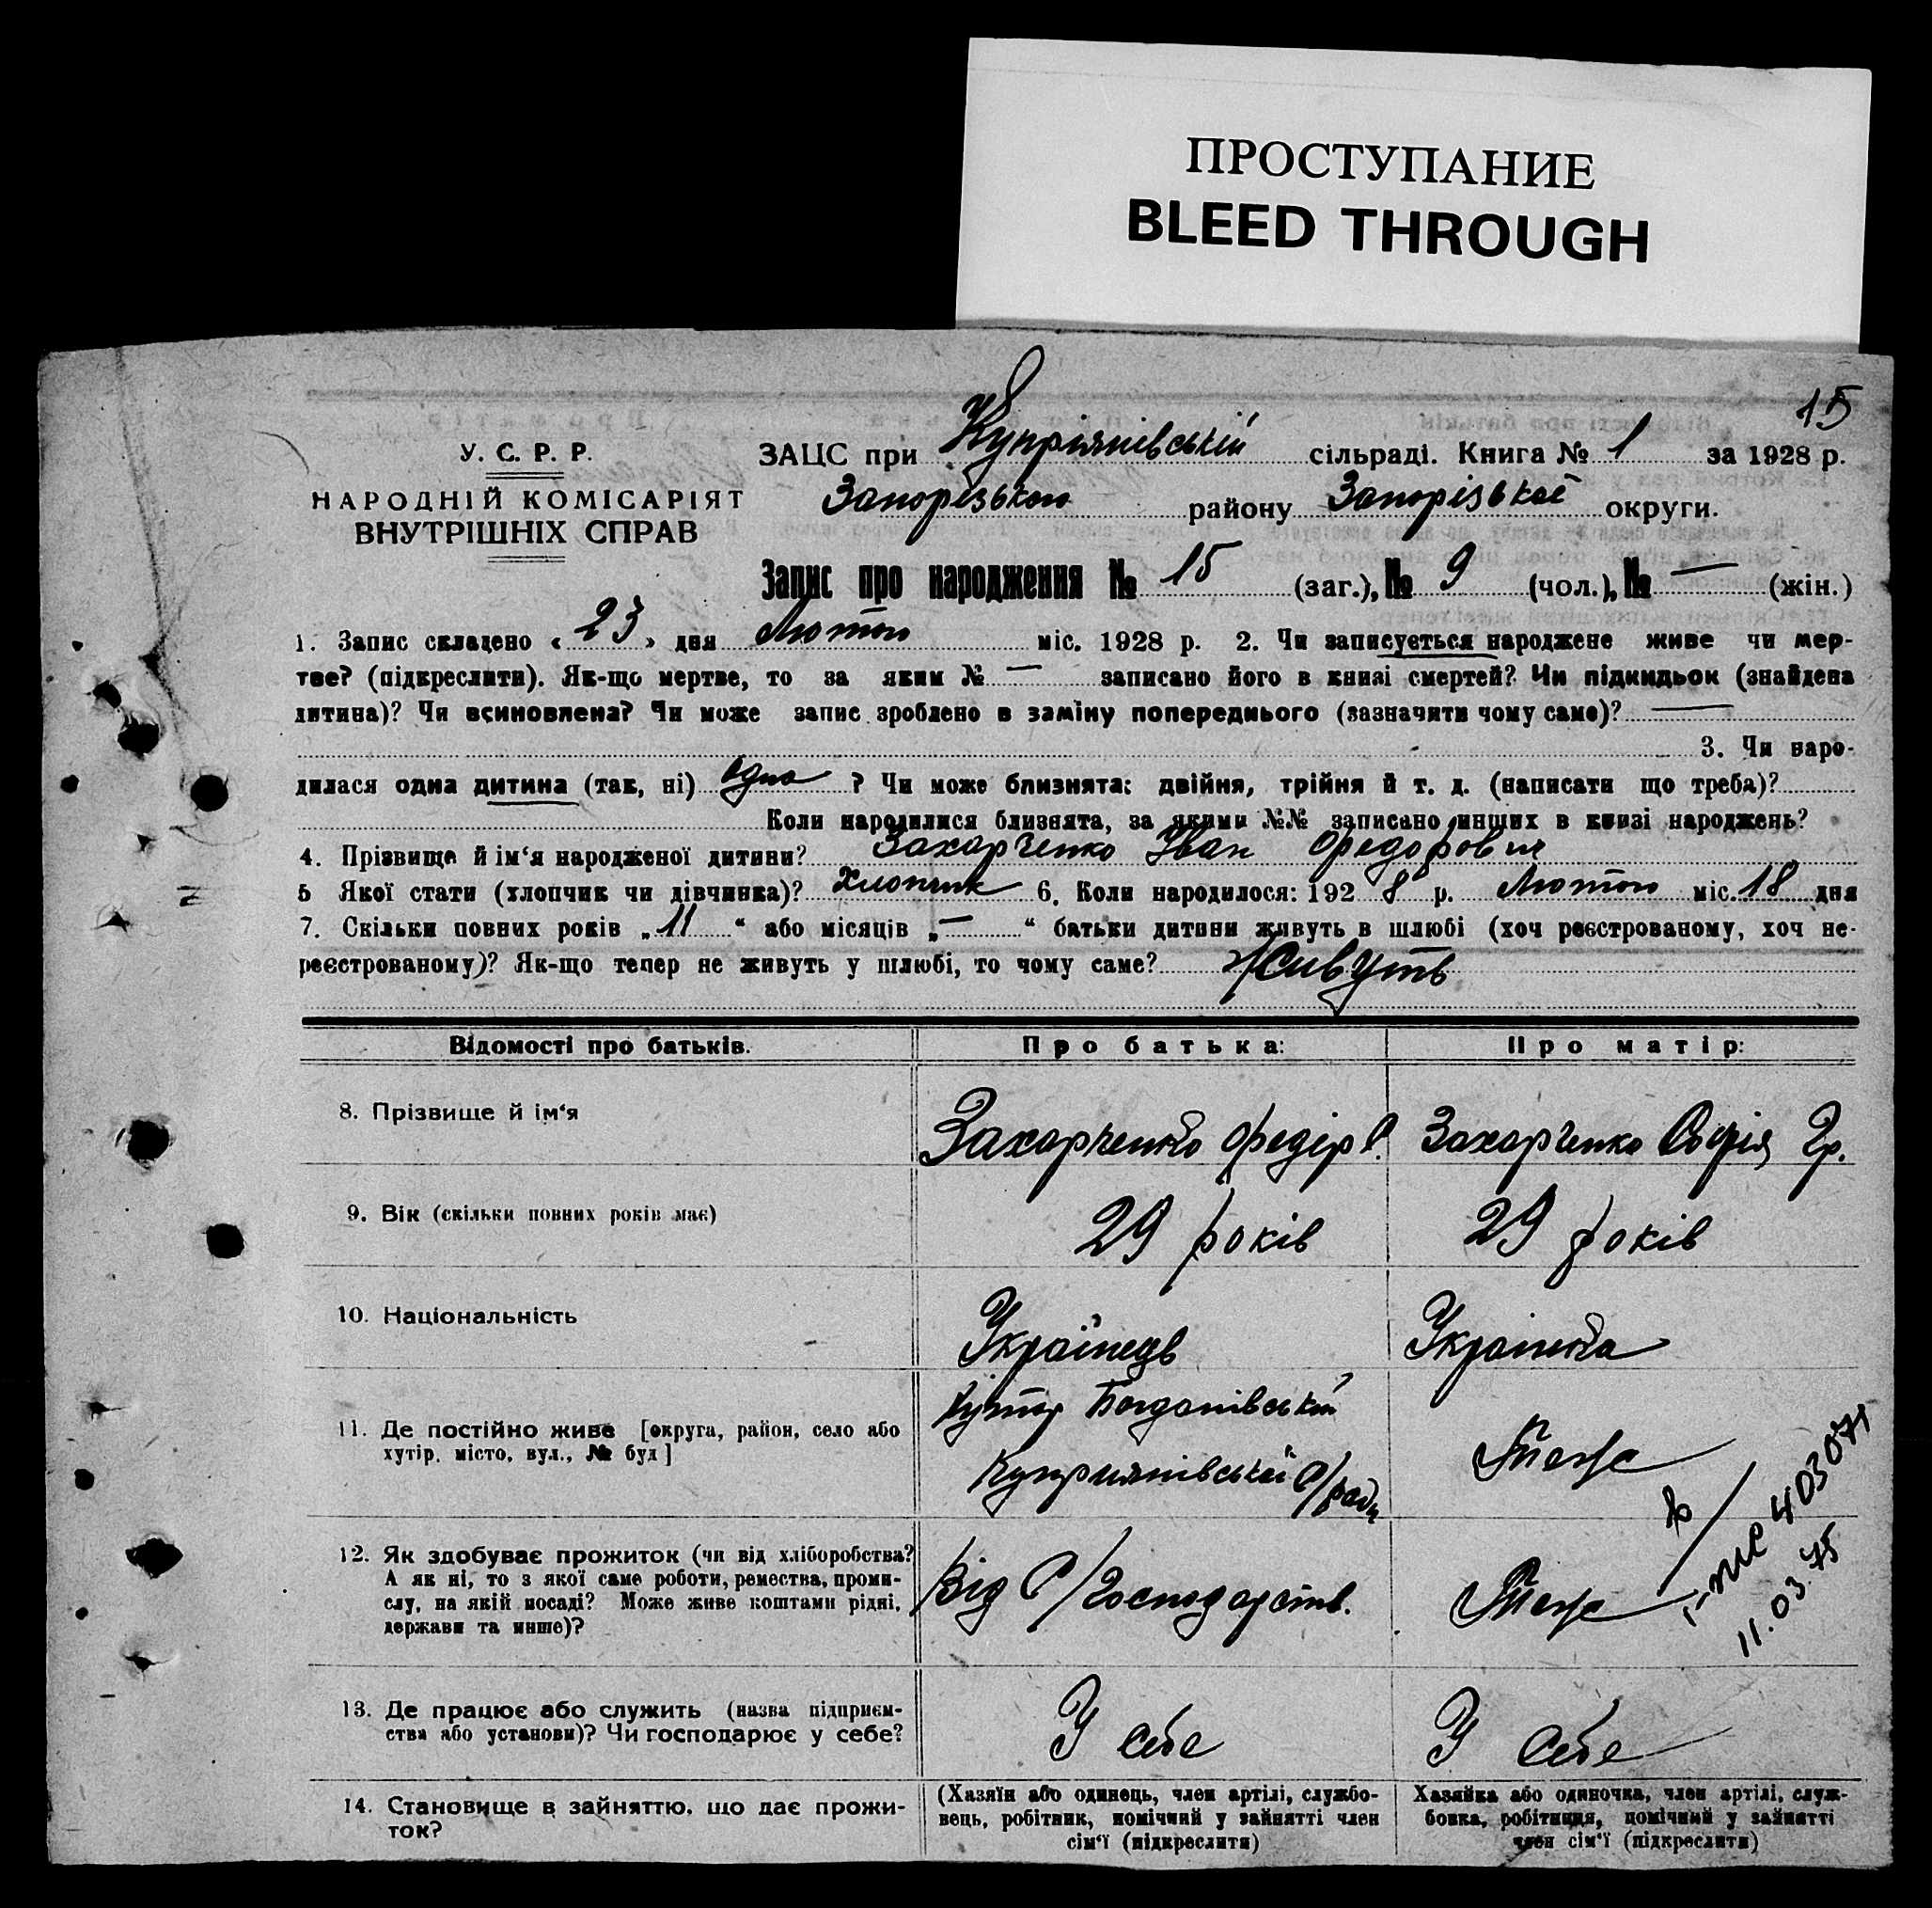 ПРОСТУПАНИЕ
BLEED THROUGH
15
У. С. Р. Р.
НАРОДНІЙ КОМІСАРІЯТ
ВНУТРІШНІХ СПРАВ
ЗАЦС при Купріянівській сільраді. Книга № 1 за 1928 р.
Запорізького району Запорізької округи.
Запис про народження № 15 (заг.), № 9 (чол.), № — (жін.)
1. Запис складено « 23 » дня Лютого міс. 1928 р. 2. Чи записується народжене живе чи мер-
тве? (підкреслити). Як-що мертве, то за яким № — записано його в книзі смертей? Чи підкидьок (знайдена
дитина)? Чи всиновлена? Чи може запис зроблено в заміну попереднього (зазначити чому саме)? —
3. Чи наро-
дилася одна дитина (так, ні) одна ? Чи може близнята: двійня, трійня й т. д. (написати що треба)?
Коли народилися близнята, за якими №№ записано инших в книзі народжень?
4. Прізвище й ім‘я народженої дитини? Захарченко Іван Федорович
5 Якої стати (хлопчик чи дівчинка)? Хлопчик 6. Коли народилося: 192 8 р. Лютого міс. 18 дня
7. Скільки повних років „ 11 “ або місяців „ — “ батьки дитини живуть в шлюбі (хоч реєстрованому, хоч не-
реєстрованому)? Як-що тепер не живуть у шлюбі, то чому саме? Живуть
Відомості про батьків. Про батька: Про матір:
8. Прізвище й ім‘я Захарченко Федір С. Захарченко Софія Гр.
9. Вік (скільки повних років має) 29 років 29 років
10. Національність Українець Українка
11. Де постійно живе [округа, район, село або
хутір, місто, вул., № буд]
Хутор Богданівський
Купріянівської С/ради
Теж
12. Як здобуває прожиток (чи від хліборобства?
А як ні, то з якої саме роботи, ремества, проми-
слу, на якій посаді? Може живе коштами рідні,
держави та инше)?
Від С/господарств.
Теж
403071
11.03.75
13. Де працює або служить (назва підприєм-
ства або установи)? Чи господарює у себе?
У себе У себе
14. Становище в зайняттю, що дає прожи-
ток?
(Хазяїн або одинець, член артілі, службо-
вець, робітник, помічний у зайнятті член
сім‘ї (підкреслити)
Хазяйка або одиночка, член артілі, служ-
бовка, робітниця, помічний у зайнятті
член сім‘ї (підкреслити)